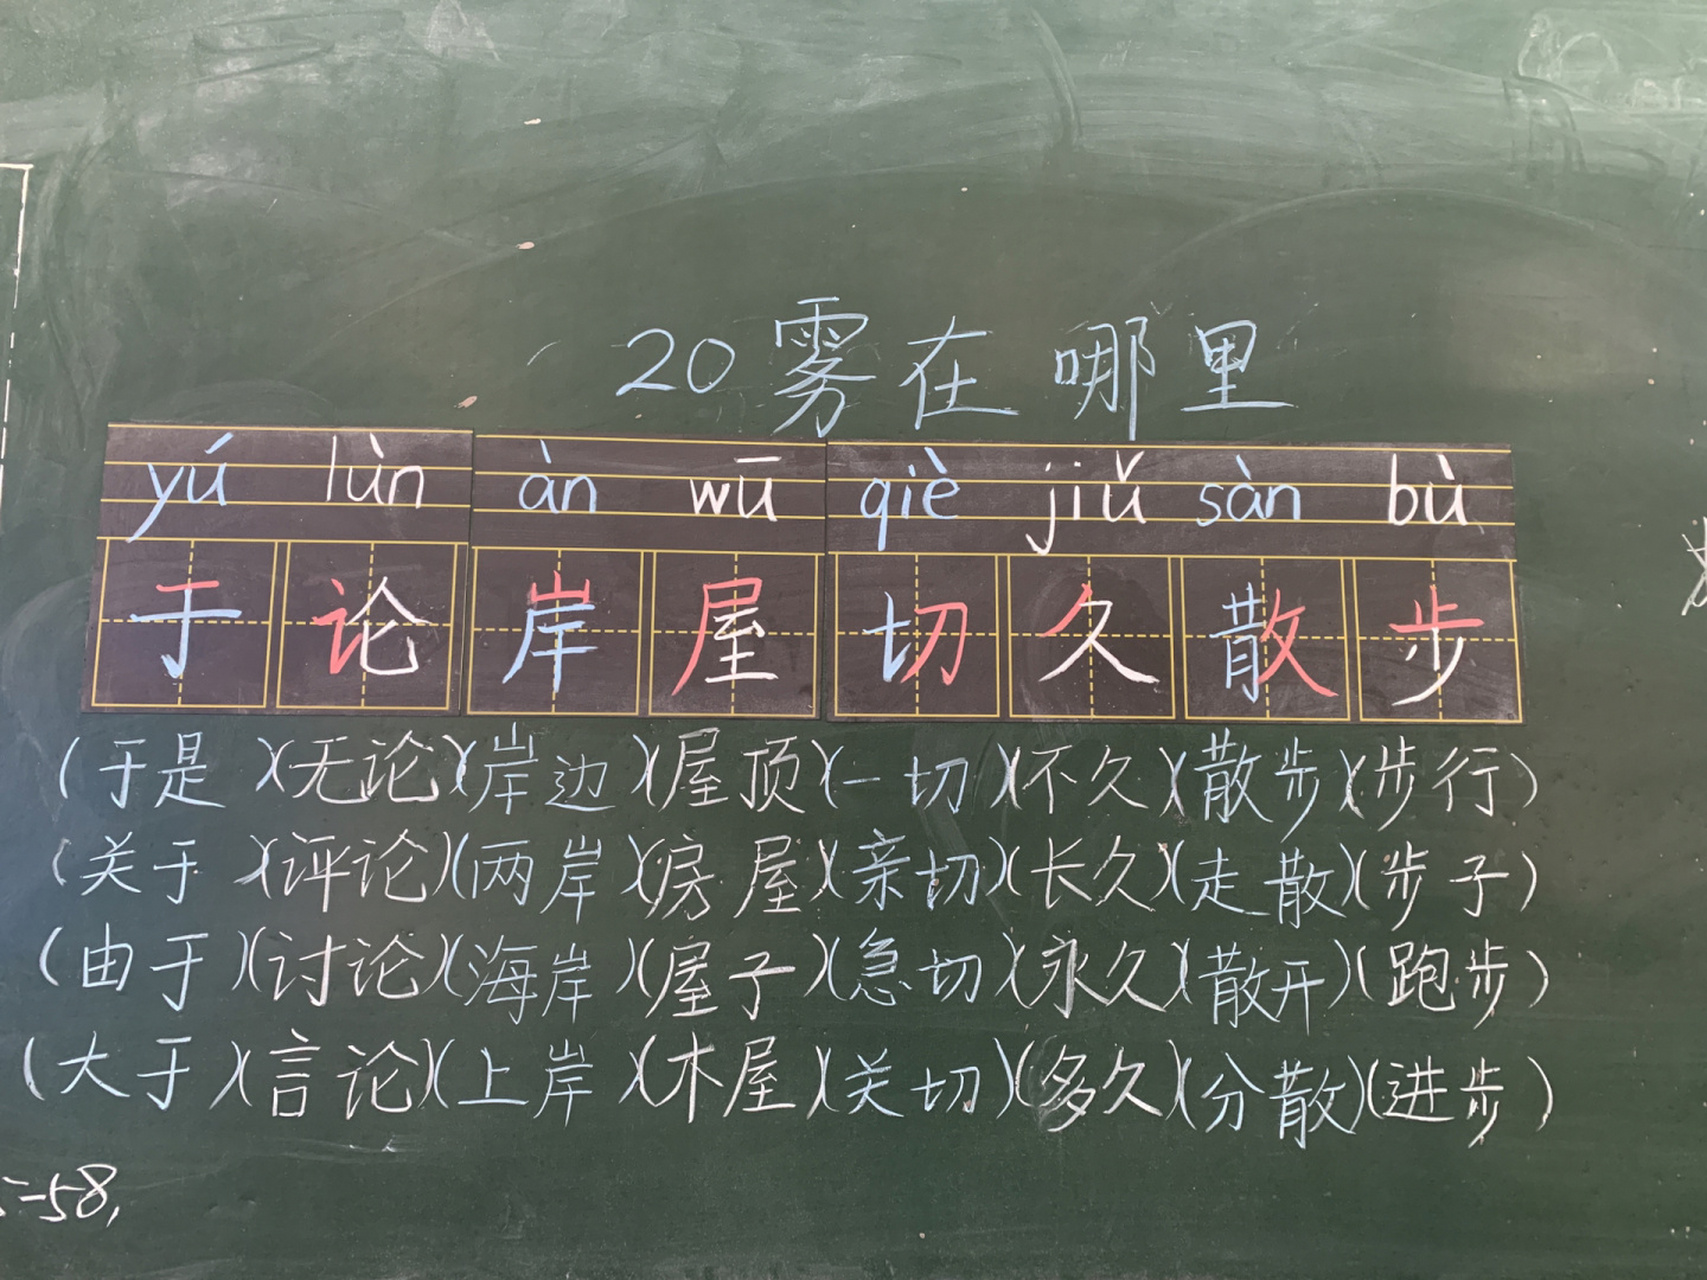 20 雾在哪里
yú lùn àn wū qiè jiǔ sàn bù
于 论 岸 屋 切 久 散 步
(于是)(无论)(岸边)(屋顶)(一切)(不久)(散步)(步行)
(关于)(评论)(两岸)(房屋)(亲切)(长久)(走散)(步子)
(由于)(讨论)(海岸)(屋子)(急切)(永久)(散开)(跑步)
(大于)(言论)(上岸)(木屋)(关切)(多久)(分散)(进步)
=58,